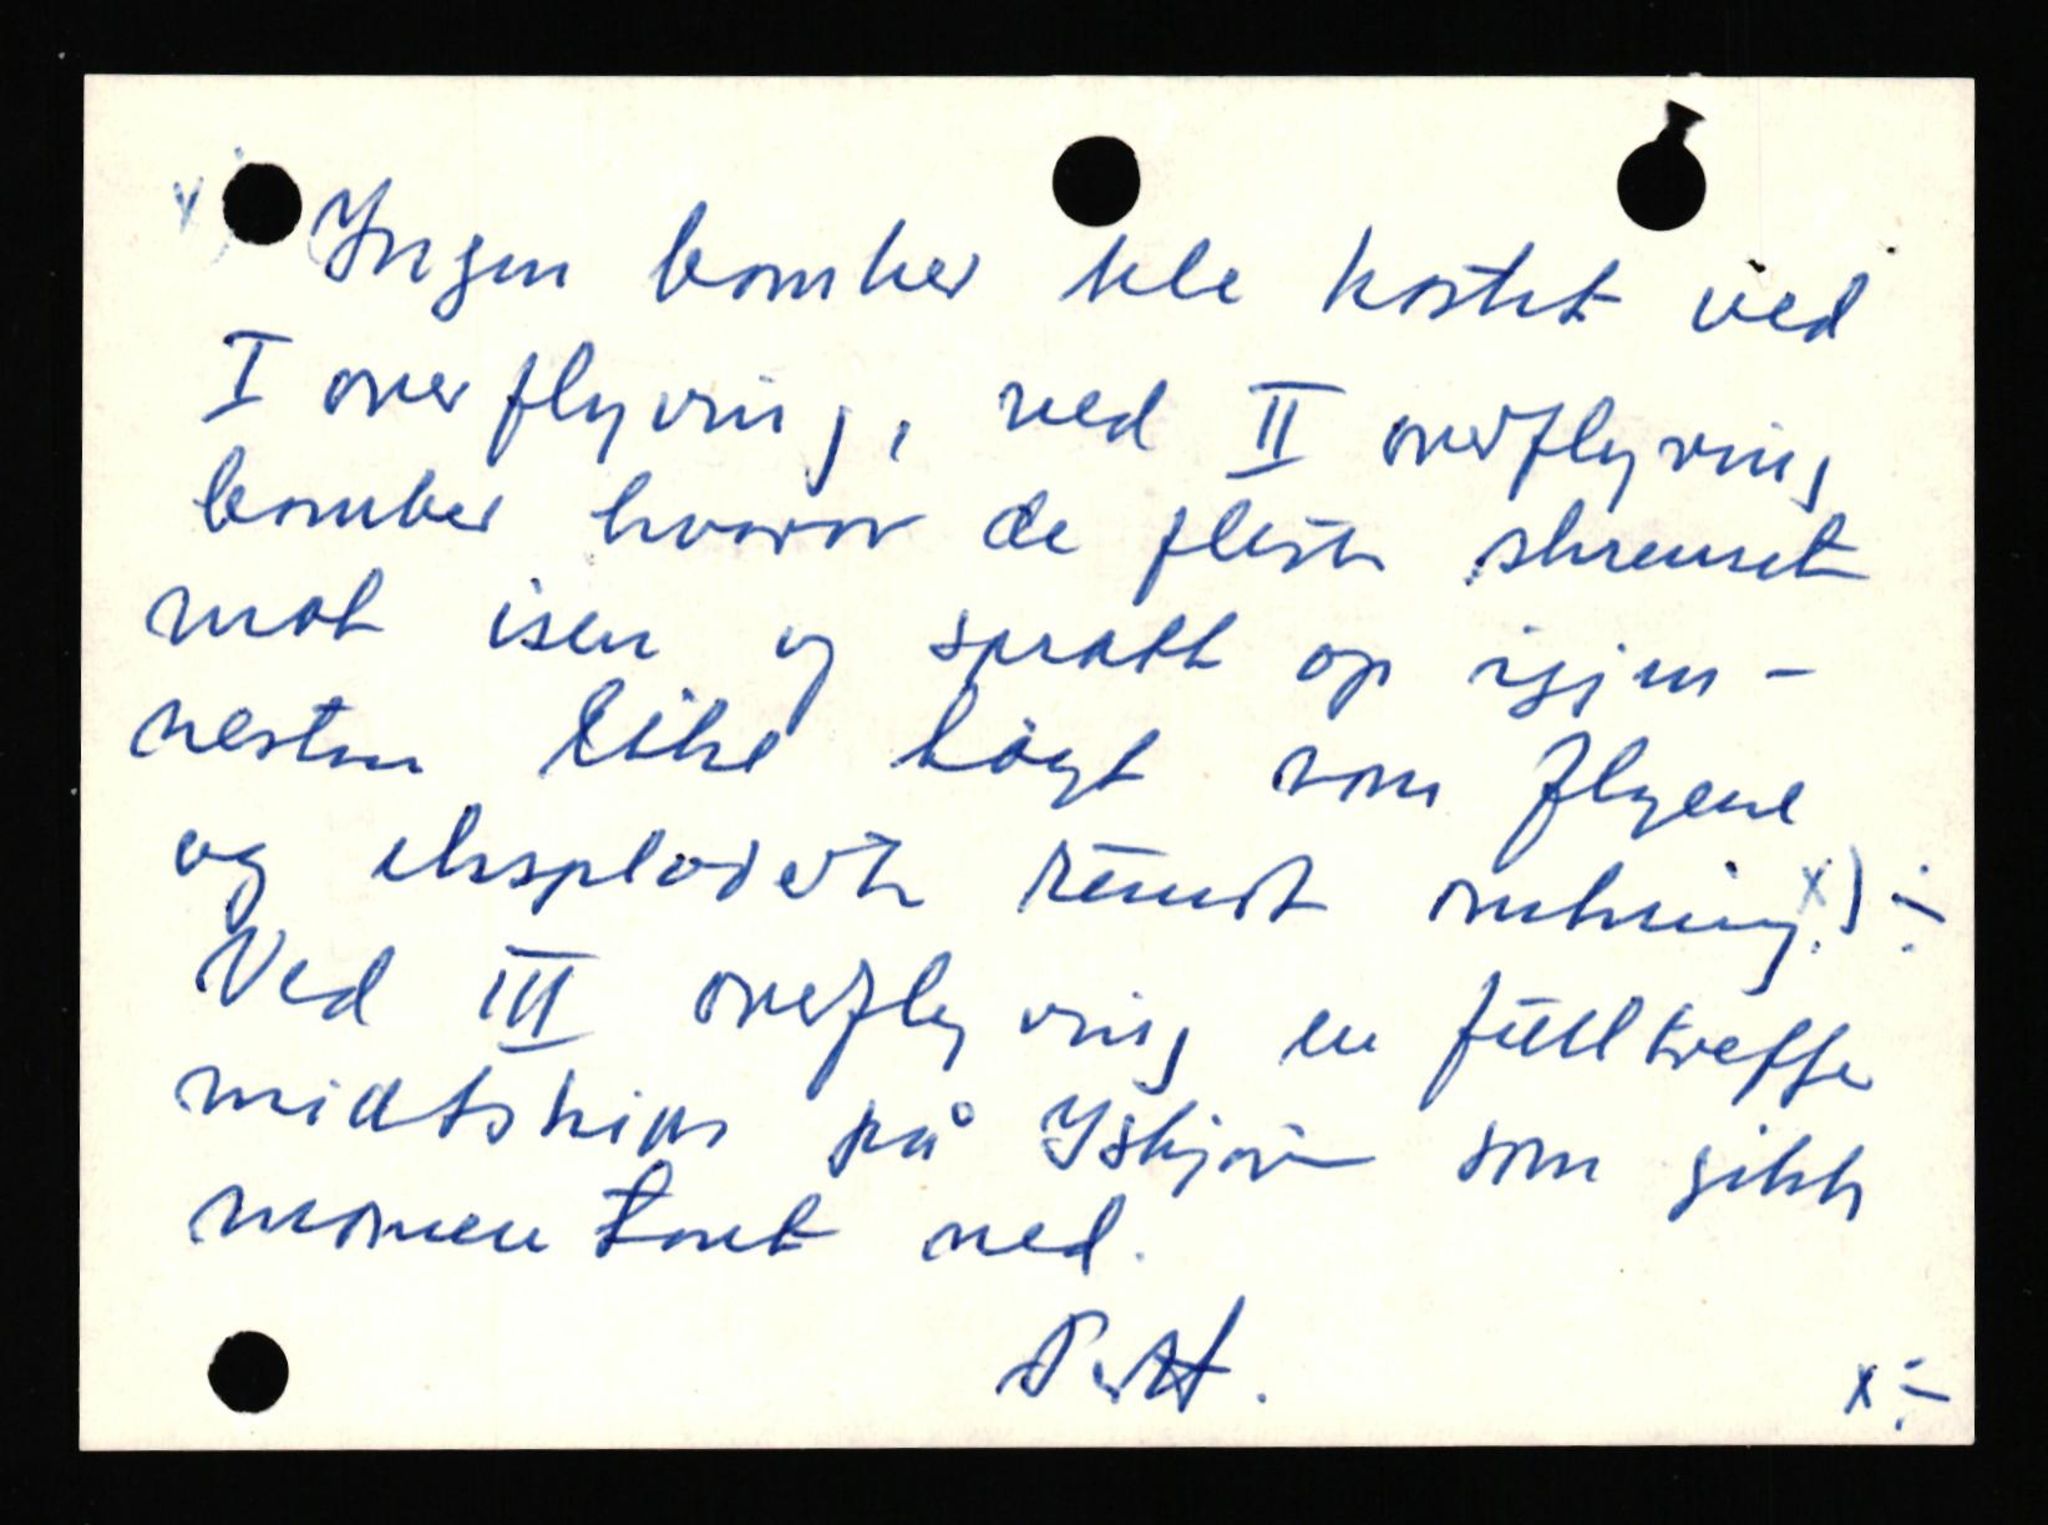 x) Ingen bomber ble kastet ved
I overflyving, ved II overflyving
bomber hvorav de fleste skrenset
mot isen og spratt op igjen -
nesten like høgt som flyene
og eksploderte rundt omkring. x) ÷
Ved III overflyving en fulltreffer
midtskips på Isbjørn som gikk
momentant ned.
x ÷